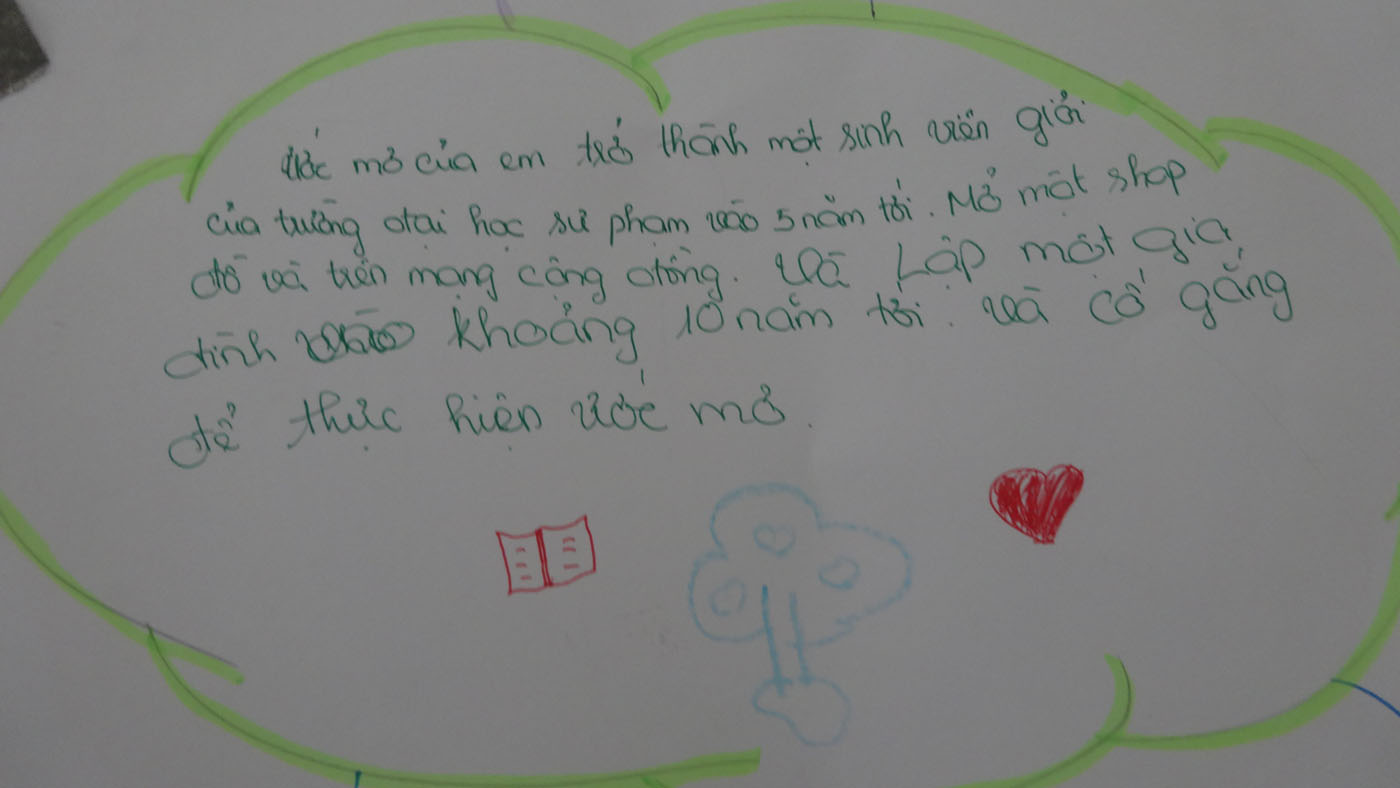 ước mơ của em trở thành một sinh viên giỏi
của trường đại học sư phạm vào 5 năm tới. Mở một shop
đồ và trên mạng cộng đồng. Và Lập một gia
đình vào khoảng 10 năm tới. và cố gắng
để thực hiện ước mơ.